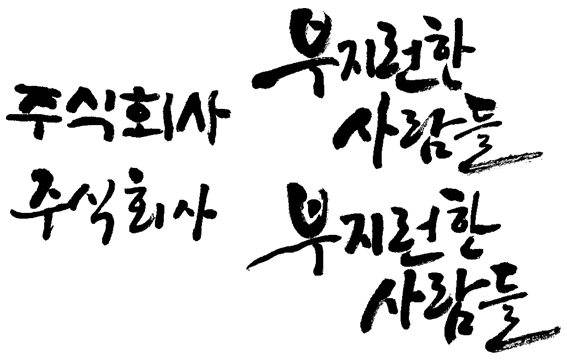 주식회사
부지런한
사람들
주식회사
부지런한
사람들